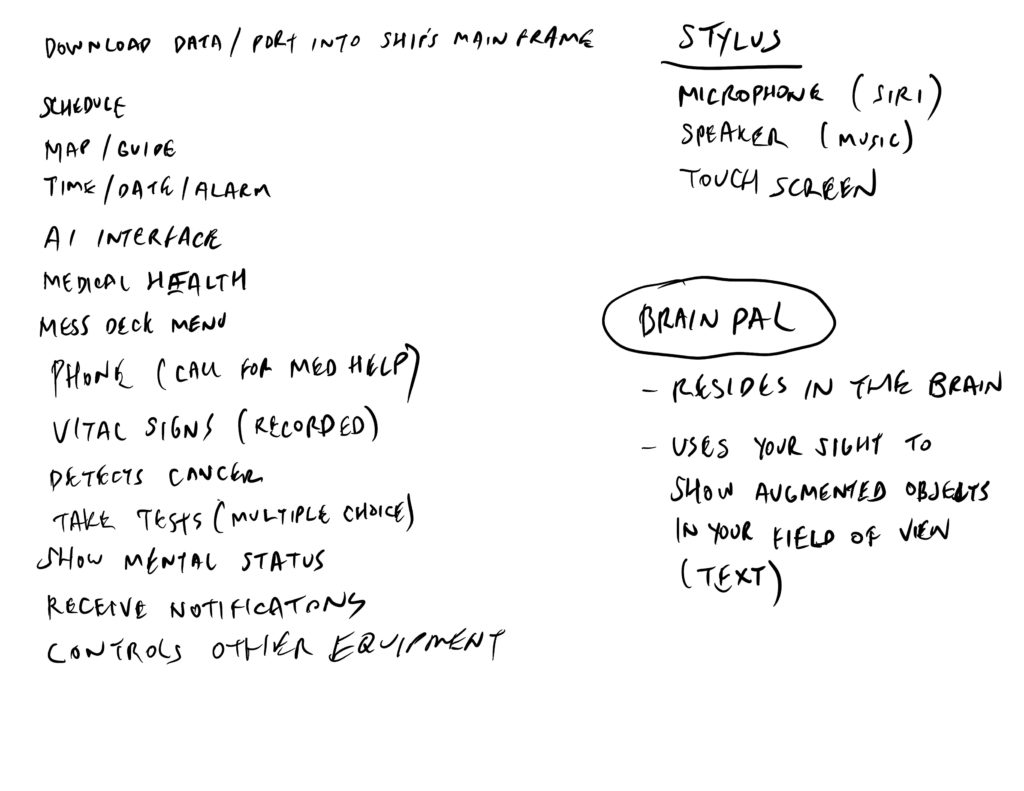 DOWNLOAD DATA / PORT INTO SHIP'S MAINFRAME
SCHEDULE
MAP / GUIDE
TIME / DATE / ALARM
AI INTERFACE
MEDICAL HEALTH
MESS DECK MENU
PHONE (CALL FOR MED HELP)
VITAL SIGNS (RECORDED)
DETECTS CANCER
TAKE TESTS (MULTIPLE CHOICE)
SHOW MENTAL STATUS
RECEIVE NOTIFICATONS
CONTROLS OTHER EQUIPMENT
STYLUS
MICROPHONE (SIRI)
SPEAKER (MUSIC)
TOUCH SCREEN
BRAIN PAL
- RESIDES IN THE BRAIN
- USES YOUR SIGHT TO
SHOW AUGMENTED OBJECTS
IN YOUR FIELD OF VIEW
(TEXT)